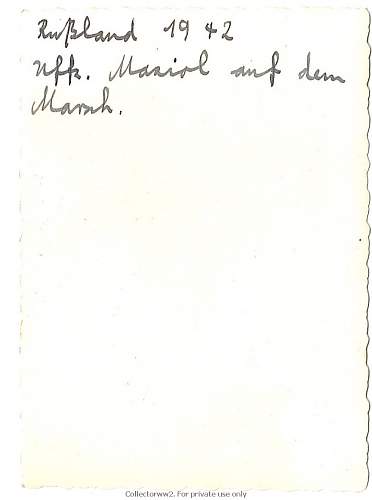 Rußland 1942
Uffz. Maziol auf dem
Marsch.
Collectorww2. For private use only